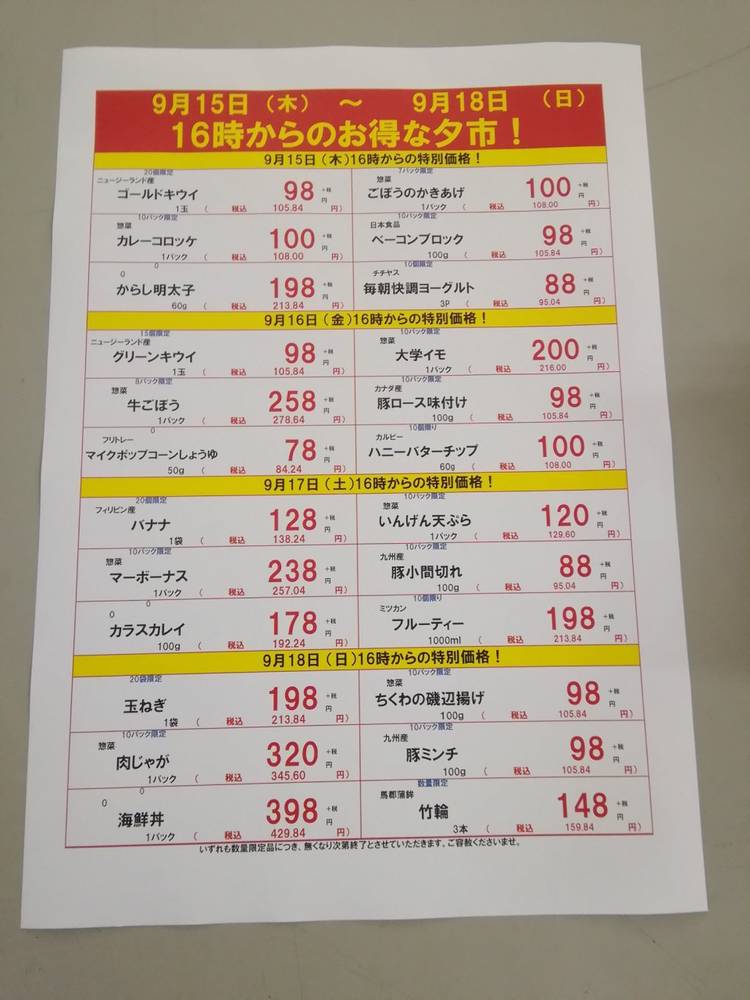 9月15日（木） ～ 9月18日 （日）
16時からのお得な夕市！
9月15日（木）16時からの特別価格！
20個限定
ニュージーランド産
ゴールドキウイ 98 +税 円
1玉 （ 税込 105.84 円）
7パック限定
惣菜
ごぼうのかきあげ 100 +税 円
1パック （ 税込 108.00 円）
10パック限定
惣菜
カレーコロッケ 100 +税 円
1パック （ 税込 108.00 円）
10パック限定
日本食品
ベーコンブロック 98 +税 円
100g （ 税込 105.84 円）
0
0
からし明太子 198 +税 円
60g （ 税込 213.84 円）
10個限定
チチヤス
毎朝快調ヨーグルト 88 +税 円
3P （ 税込 95.04 円）
9月16日（金）16時からの特別価格！
15個限定
ニュージーランド産
グリーンキウイ 98 +税 円
1玉 （ 税込 105.84 円）
10パック限定
惣菜
大学イモ 200 +税 円
1パック （ 税込 216.00 円）
8パック限定
惣菜
牛ごぼう 258 +税 円
1パック （ 税込 278.64 円）
10パック限定
カナダ産
豚ロース味付け 98 +税 円
100g （ 税込 105.84 円）
0
フリトレー
マイクポップコーンしょうゆ 78 +税 円
50g （ 税込 84.24 円）
10個限り
カルビー
ハニーバターチップ 100 +税 円
60g （ 税込 108.00 円）
9月17日（土）16時からの特別価格！
20個限定
フィリピン産
バナナ 128 +税 円
1袋 （ 税込 138.24 円）
10パック限定
惣菜
いんげん天ぷら 120 +税 円
1パック （ 税込 129.60 円）
10パック限定
惣菜
マーボーナス 238 +税 円
1パック （ 税込 257.04 円）
10パック限定
九州産
豚小間切れ 88 +税 円
100g （ 税込 95.04 円）
0
0
カラスカレイ 178 +税 円
100g （ 税込 192.24 円）
10個限り
ミツカン
フルーティー 198 +税 円
1000ml （ 税込 213.84 円）
9月18日（日）16時からの特別価格！
20袋限定
玉ねぎ 198 +税 円
1袋 （ 税込 213.84 円）
10パック限定
惣菜
ちくわの磯辺揚げ 98 +税 円
100g （ 税込 105.84 円）
10パック限定
惣菜
肉じゃが 320 +税 円
1パック （ 税込 345.60 円）
10パック限定
九州産
豚ミンチ 98 +税 円
100g （ 税込 105.84 円）
0
0
海鮮丼 398 +税 円
1パック （ 税込 429.84 円）
数量限定
馬郡蒲鉾
竹輪 148 +税 円
3本 （ 税込 159.84 円）
いずれも数量限定品につき、無くなり次第終了とさせていただきます。ご容赦くださいませ。